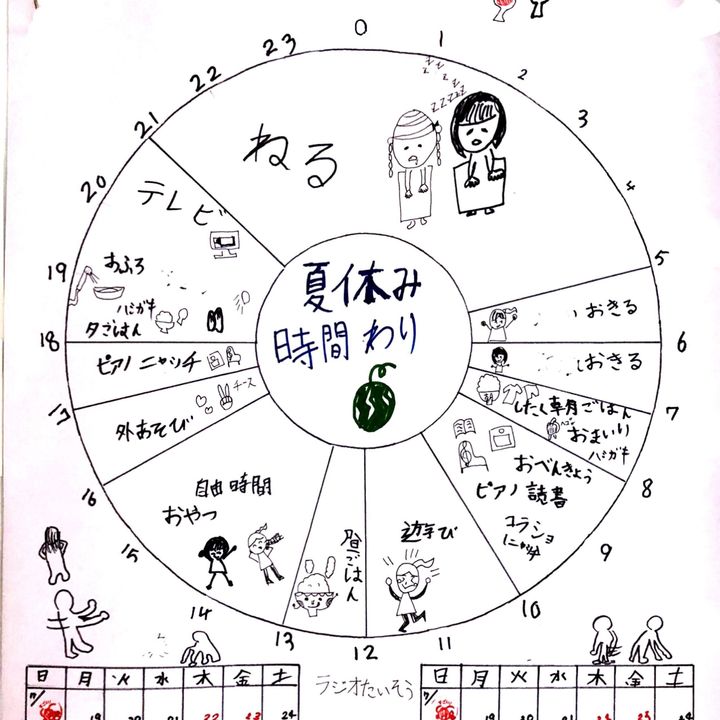 0
1
2
3
4
5
6
7
8
9
10
11
12
13
14
15
16
17
18
19
20
21
22
23
夏休み
時間わり
ねる
zzz
zzz
zzzz
おきる
おきる
したく 朝ごはん
おまいり
ハミガキ
おべんきょう
ピアノ 読書
コラショ
ニャッチ
遊び
昼ごはん
自由時間
おやつ
外あそび
チース
ピアノ ニャッチ
夕ごはん
ハミガキ
おふろ
テレビ
ラジオたいそう
日 月 火 水 木 金 土
7/ 19 20 21 22 23 24
日 月 火 水 木 金 土
7/ 19 20 21 22 23 24